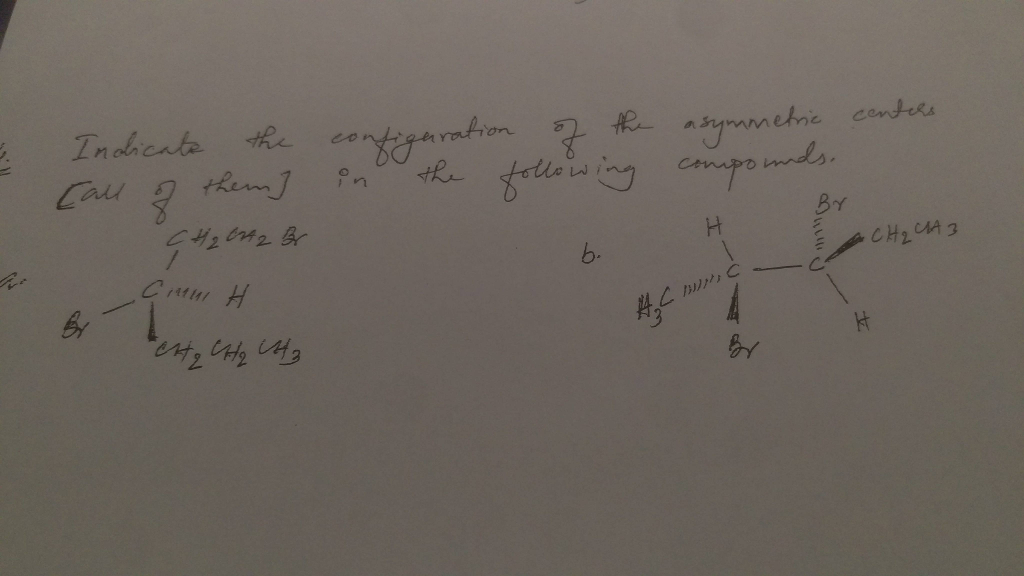 Indicate the configuration of the asymmetric centers
[all of them] in the following compounds.
CH2CH2Br
C H
Br
CH2CH2CH3
b.
Br
H
CH2CH3
C C
H3C
Br
H